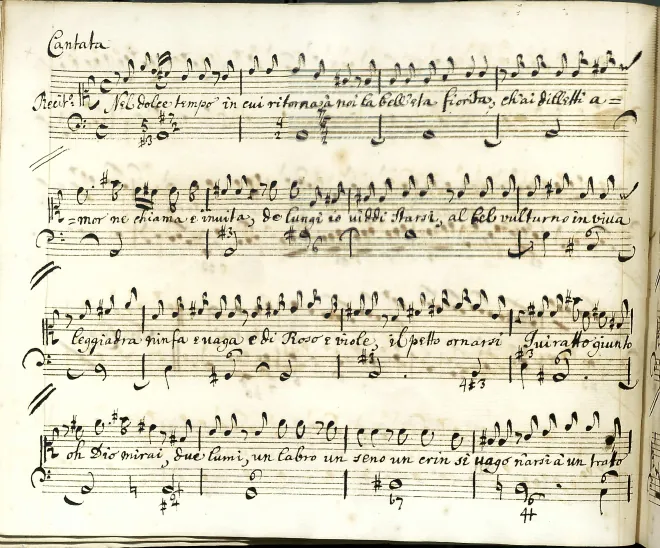 Cantata
Recit.o Nel dolce tempo in cui ritorna à noi la bell'eta fiorita, ch'ai diletti a=
=mor ne chiama e inuita, da lungi io uiddi starsi, al bel vulturno in riua
leggiadra ninfa e uaga e di Rose e viole, il petto ornarsi Iui ratto giunto
oh Dio mirai, due lumi, un labro un seno un crin si uago n'arsi à un tratto